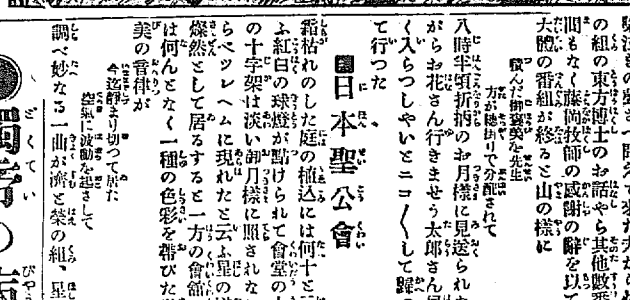 の組の東方博士のお話やら其他數番
間もなく藤岡牧師の感謝の辭を以
大體の番組が終ると山の樣に
積んだ御褒美を先生
方が總掛りで分配されて
八時半頃折柄のお月樣に見送られ
がらお花さん行きませう太郎さん
く入らつしやいとニコ〱して歸
て行つた
日本聖公會
霜枯れのした庭の植込には何十と
ふ紅白の球燈が點けられて會堂の
の十字架は淡い御月樣に照されな
らベツレヘムに現れたと云ふ星の
燦然として居るすると一方の會館
は何んとなく一種の色彩を帶びた
美の音律が
今迄靜まり切つて居た
空氣に波動を起さして
調べ妙なる一曲が濟と榮の組、星